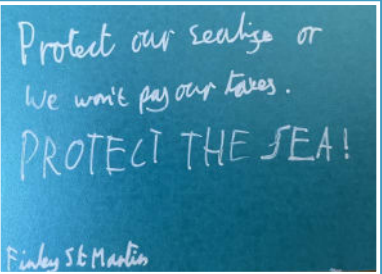 Protect our sealife or
We won't pay our taxes.
PROTECT THE SEA!
Finley St Martins